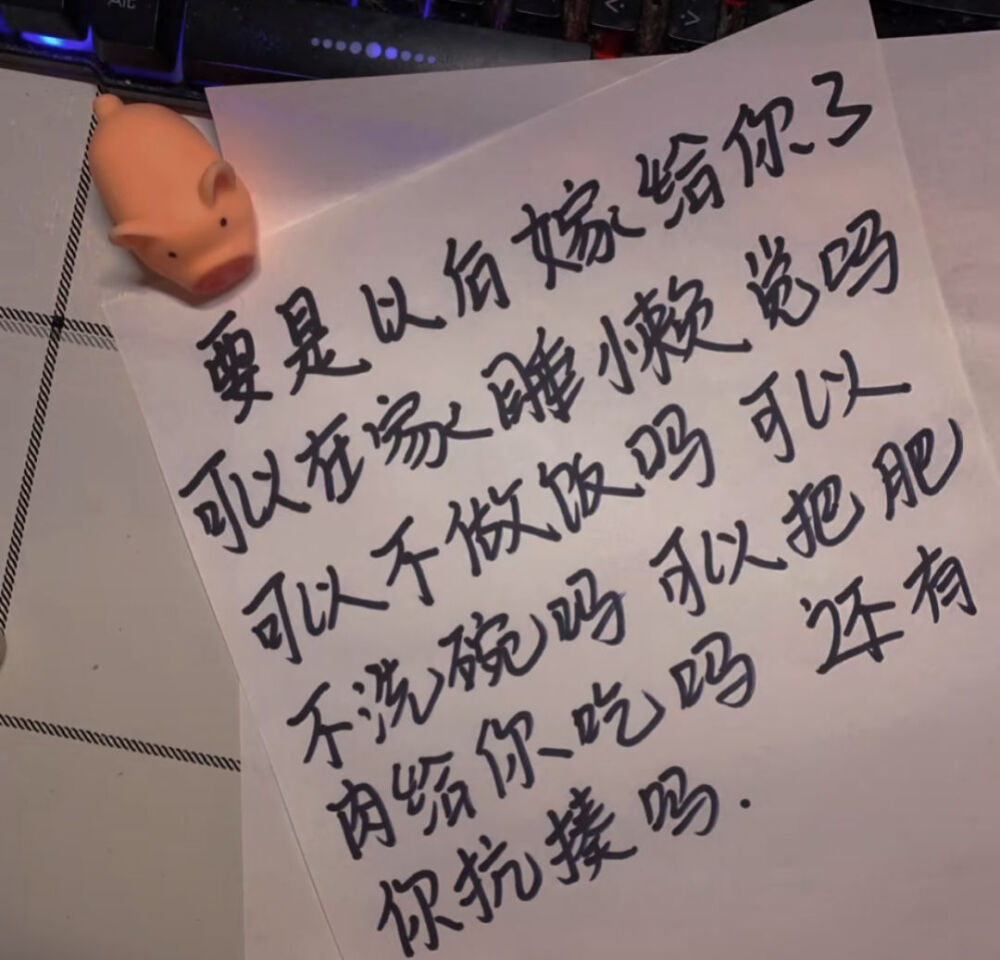 Alt
要是以后嫁给你了
可以在家睡懒觉吗
可以不做饭吗 可以
不洗碗吗 可以把肥
肉给你吃吗 还有
你抗揍吗.